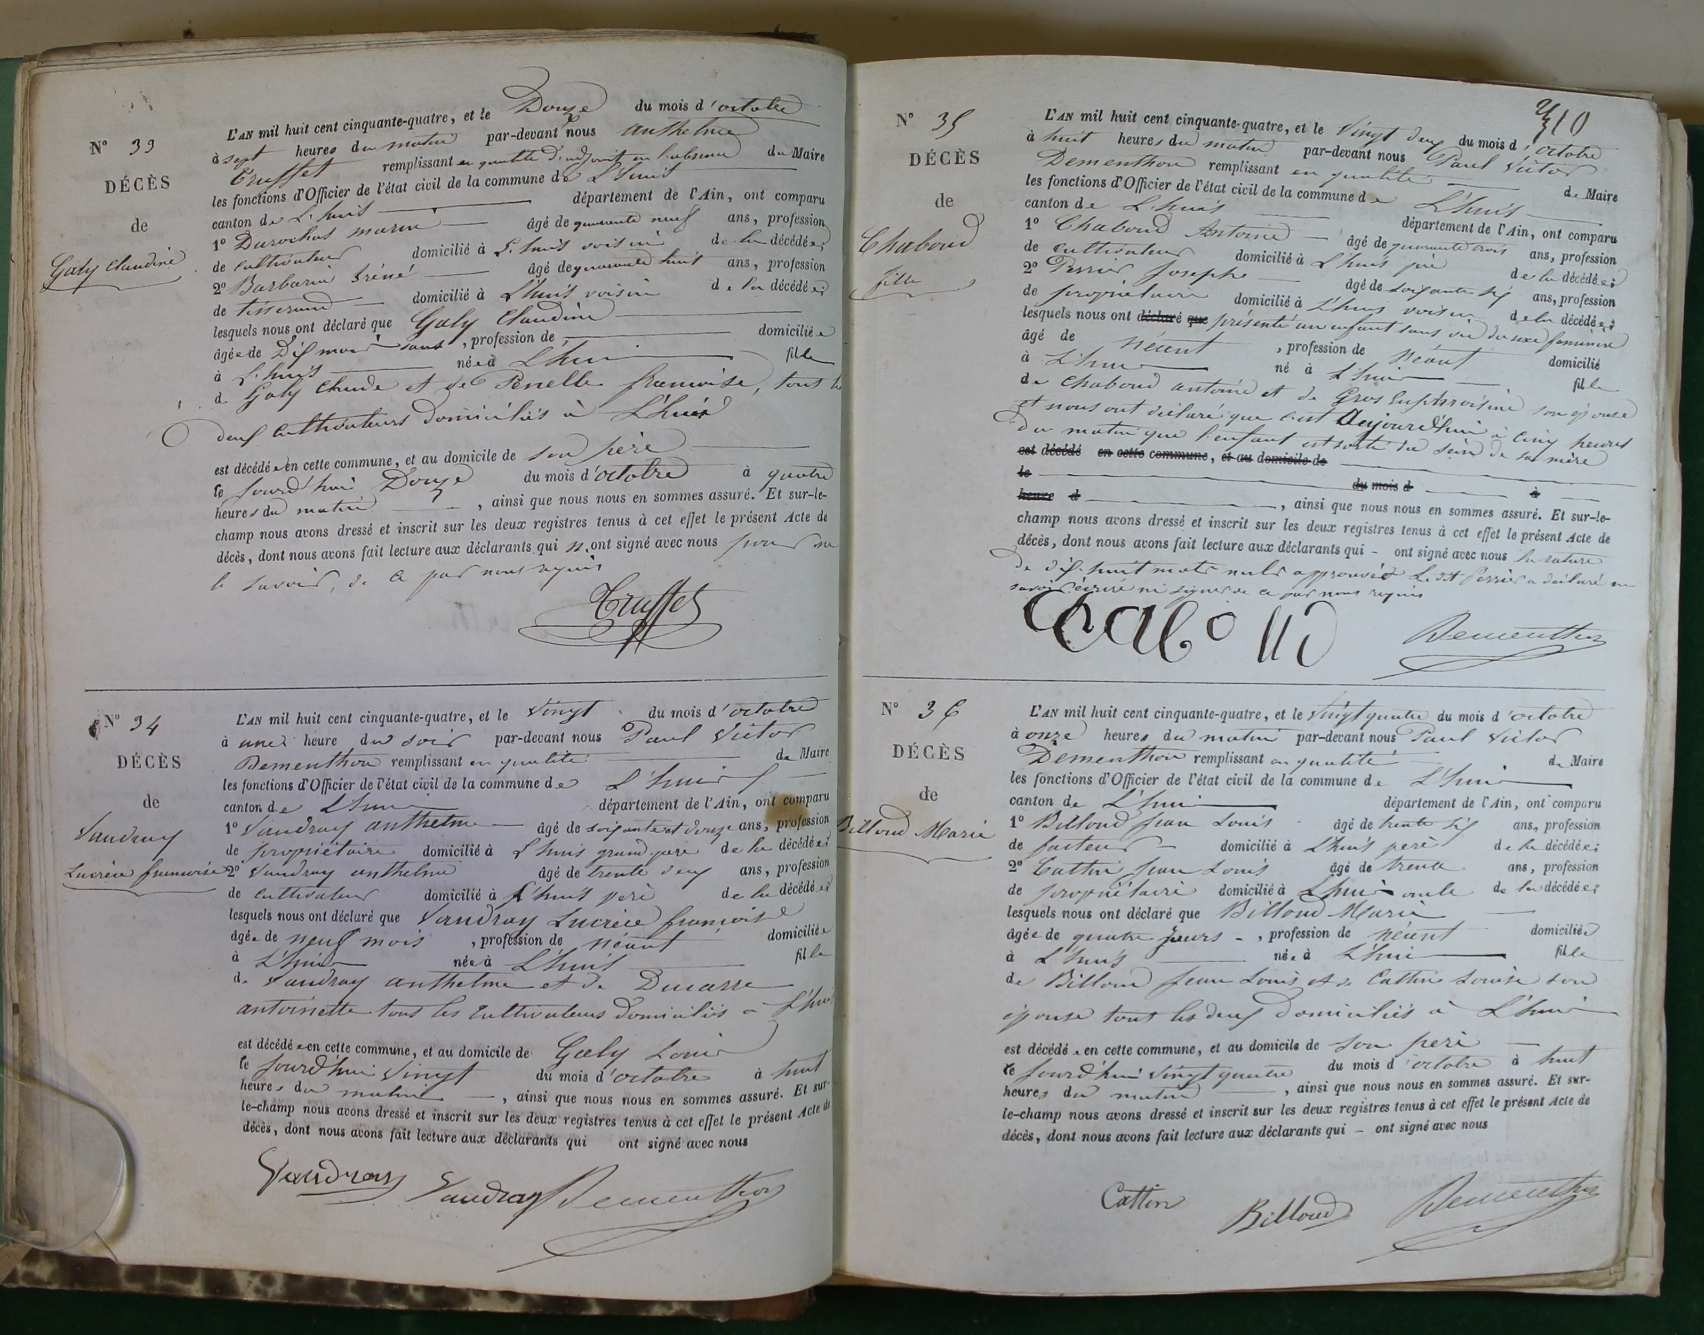 N° 33
DÉCÈS
de
Galy Claudine
L'AN mil huit cent cinquante-quatre, et le Douze du mois d'octobre
à sept heures du matin par-devant nous anthelme
Truffet remplissant en qualité d'adjoint en l'absence du Maire
les fonctions d'Officier de l'état civil de la commune de L'huis
canton de L'huis département de l'Ain, ont comparu
1° Durochat marin âgé de quarante neuf ans, profession
de cultivateur domicilié à L'huis voisin de la décédée;
2° Barbarin iréné âgé de quarante huit ans, profession
de tisserand domicilié à L'huis voisin de la décédée;
lesquels nous ont déclaré que Galy Claudine
âgée de Dix mois sans, profession de domiciliée
à L'huis née à L'huis fille
de Galy Claude et de Penelle françoise, tous les
deux cultivateurs domiciliés à L'huis
est décédée en cette commune, et au domicile de son père
le jourd'hui Douze du mois d'octobre à quatre
heures du matin, ainsi que nous nous en sommes assuré. Et sur-le-
champ nous avons dressé et inscrit sur les deux registres tenus à cet effet le présent Acte de
décès, dont nous avons fait lecture aux déclarants qui n'ont signé avec nous pour ne
le savoir, de ce par nous requis
Truffet
N° 34
DÉCÈS
de
Vaudray
Lucrèce françoise
L'AN mil huit cent cinquante-quatre, et le vingt du mois d'octobre
à une heure du soir par-devant nous Paul Victor
Dementhon remplissant en qualité de Maire
les fonctions d'Officier de l'état civil de la commune de L'huis
canton de L'huis département de l'Ain, ont comparu
1° Vaudray anthelme âgé de soixante et douze ans, profession
de propriétaire domicilié à L'huis grand père de la décédée;
2° Vaudray anthelme âgé de trente deux ans, profession
de cultivateur domicilié à L'huis père de la décédée;
lesquels nous ont déclaré que Vaudray Lucrèce françoise
âgée de neuf mois, profession de néant domiciliée
à L'huis née à L'huis fille
de Vaudray anthelme et de Ducarre
antoinette tous les cultivateurs domiciliés à L'huis
est décédée en cette commune, et au domicile de Galy Louis
le jourd'hui vingt du mois d'octobre à huit
heures du matin, ainsi que nous nous en sommes assuré. Et sur-
le-champ nous avons dressé et inscrit sur les deux registres tenus à cet effet le présent Acte de
décès, dont nous avons fait lecture aux déclarants qui ont signé avec nous
Vaudray Vaudray Dementhon
10
N° 35
DÉCÈS
de
Chaboud
fille
L'AN mil huit cent cinquante-quatre, et le vingt deux du mois d'octobre
à huit heures du matin par-devant nous Paul Victor
Dementhon remplissant en qualité de Maire
les fonctions d'Officier de l'état civil de la commune de L'huis
canton de L'huis département de l'Ain, ont comparu
1° Chaboud Antoine âgé de quarante trois ans, profession
de cultivateur domicilié à L'huis père de la décédée;
2° Perrier Joseph âgé de soixante six ans, profession
de propriétaire domicilié à L'huis voisin de la décédée;
lesquels nous ont déclaré que présenté un enfant sans vie du sexe féminin
âgé de néant, profession de Néant domicilié
à L'huis né à L'huis fille
de Chaboud antoine et de Gros Euphrosine son épouse
et nous ont déclaré que c'est Aujourd'hui à cinq heures
du matin que l'enfant est sorti du sein de sa mère
est décédé en cette commune, et au domicile de
le du mois d à
heure d, ainsi que nous nous en sommes assuré. Et sur-le-
champ nous avons dressé et inscrit sur les deux registres tenus à cet effet le présent Acte de
décès, dont nous avons fait lecture aux déclarants qui - ont signé avec nous la rature
de dix huit mots nuls approuvée Ledit Perrier a déclaré ne
savoir écrire ni signer de ce par nous requis
Chaboud Dementhon
N° 36
DÉCÈS
de
Billoud Marie
L'AN mil huit cent cinquante-quatre, et le vingt quatre du mois d'octobre
à onze heures du matin par-devant nous Paul Victor
Dementhon remplissant en qualité de Maire
les fonctions d'Officier de l'état civil de la commune de L'huis
canton de L'huis département de l'Ain, ont comparu
1° Billoud Jean Louis âgé de trente six ans, profession
de facteur domicilié à L'huis père de la décédée;
2° Cattin Jean Louis âgé de trente ans, profession
de propriétaire domicilié à L'huis oncle de la décédée;
lesquels nous ont déclaré que Billoud Marie
âgée de quatre jours -, profession de néant domiciliée
à L'huis née à L'huis fille
de Billoud Jean Louis et de Cattin Louise son
épouse tous les deux domiciliés à L'huis
est décédée en cette commune, et au domicile de son père
le jourd'hui vingt quatre du mois d'octobre à huit
heures du matin, ainsi que nous nous en sommes assuré. Et sur-
le-champ nous avons dressé et inscrit sur les deux registres tenus à cet effet le présent Acte de
décès, dont nous avons fait lecture aux déclarants qui - ont signé avec nous
Cattin Billoud Dementhon